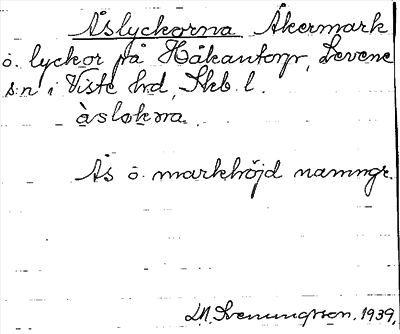 Åslyckorna Åkermark
o. lyckor på Håkantorp, Levene
s:n i Viste hd, Skb. l.
åslokna
Ås o. markhöjd namngr.
M. Svenungsson. 1939.